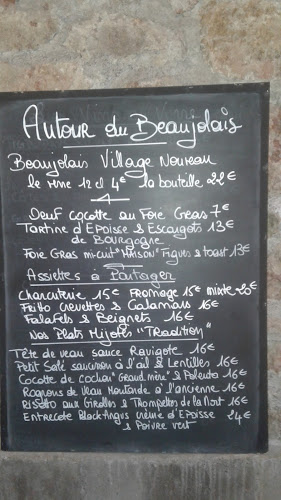 Autour du Beaujolais
Beaujolais Village Nouveau
le verre 12 cl 4€ la bouteille 22€
Oeuf cocotte au Foie Gras 7€
Tartine d'Epoisse & Escargots 13€
de Bourgogne
Foie Gras mi-cuit "MAISON" Figues & toast 13€
Assiettes à Partager
Charcuterie 15€ Fromage 15€ mixte 20€
Fritto crevettes & Calamars 16€
Falafels & Beignets 16€
Nos Plats Mijotés "Tradition"
Tête de veau sauce Ravigote 16€
Petit Salé saucisson à l'ail & Lentilles 16€
Cocotte de cochon "Grand mère" & Polenta 16€
Rognons de Veau Moutarde à l'ancienne 16€
Risotto aux Girolles & Trompettes de la Mort 16€
Entrecote Black-Angus crème d'Epoisse 24€
& Poivre vert